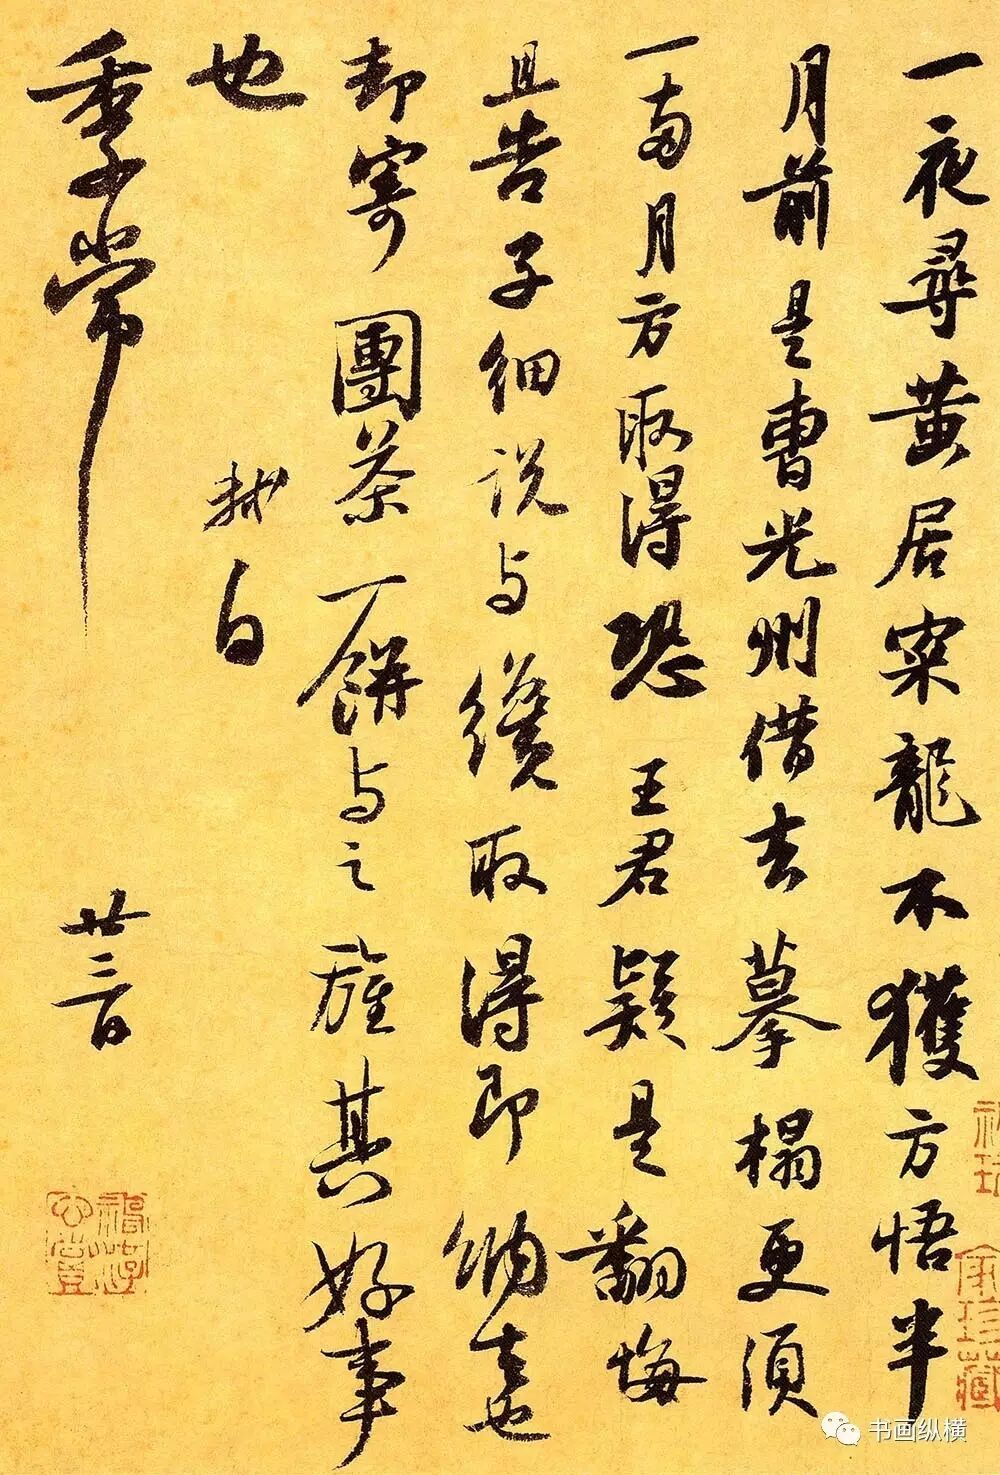 一夜尋黄居寀龍不獲方悟半
月前是曹光州借去摹榻更須
一兩月方取得恐王君疑是翻悔
且告子細説与纔取得即納去也
却寄團茶一餅与之旌其好事
也
軾白
季常
廿三日
书画纵横